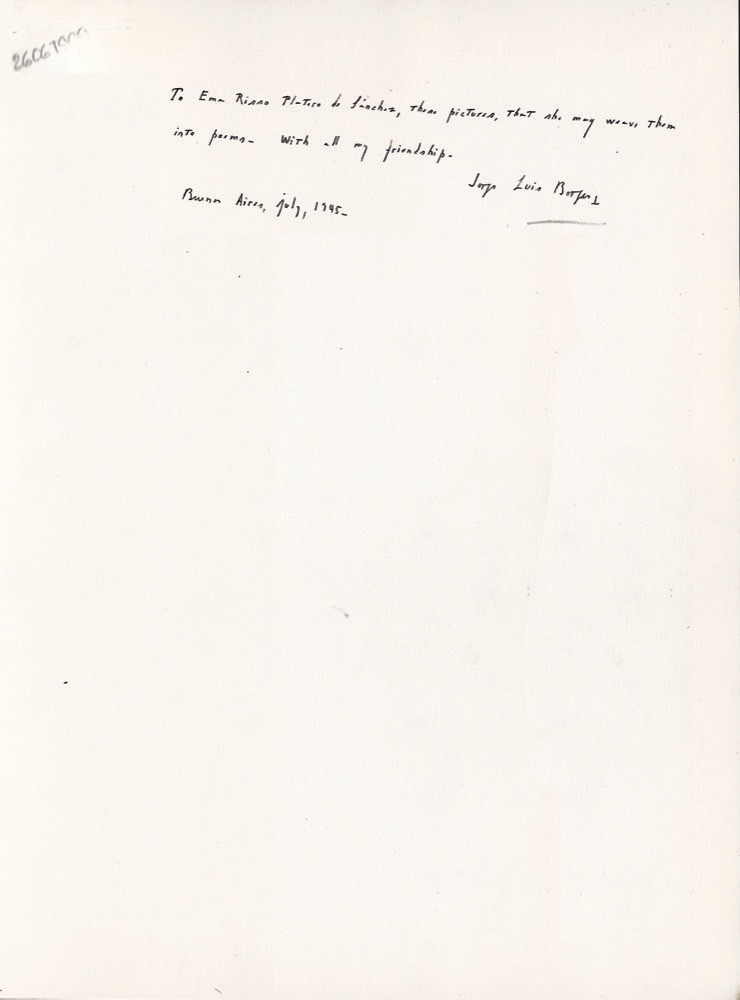 To Ema Risso Platero de Sánchez, these pictures, that she may weave them
into poems— With all my friendship.
Jorge Luis Borges
Buenos Aires, july, 1945—